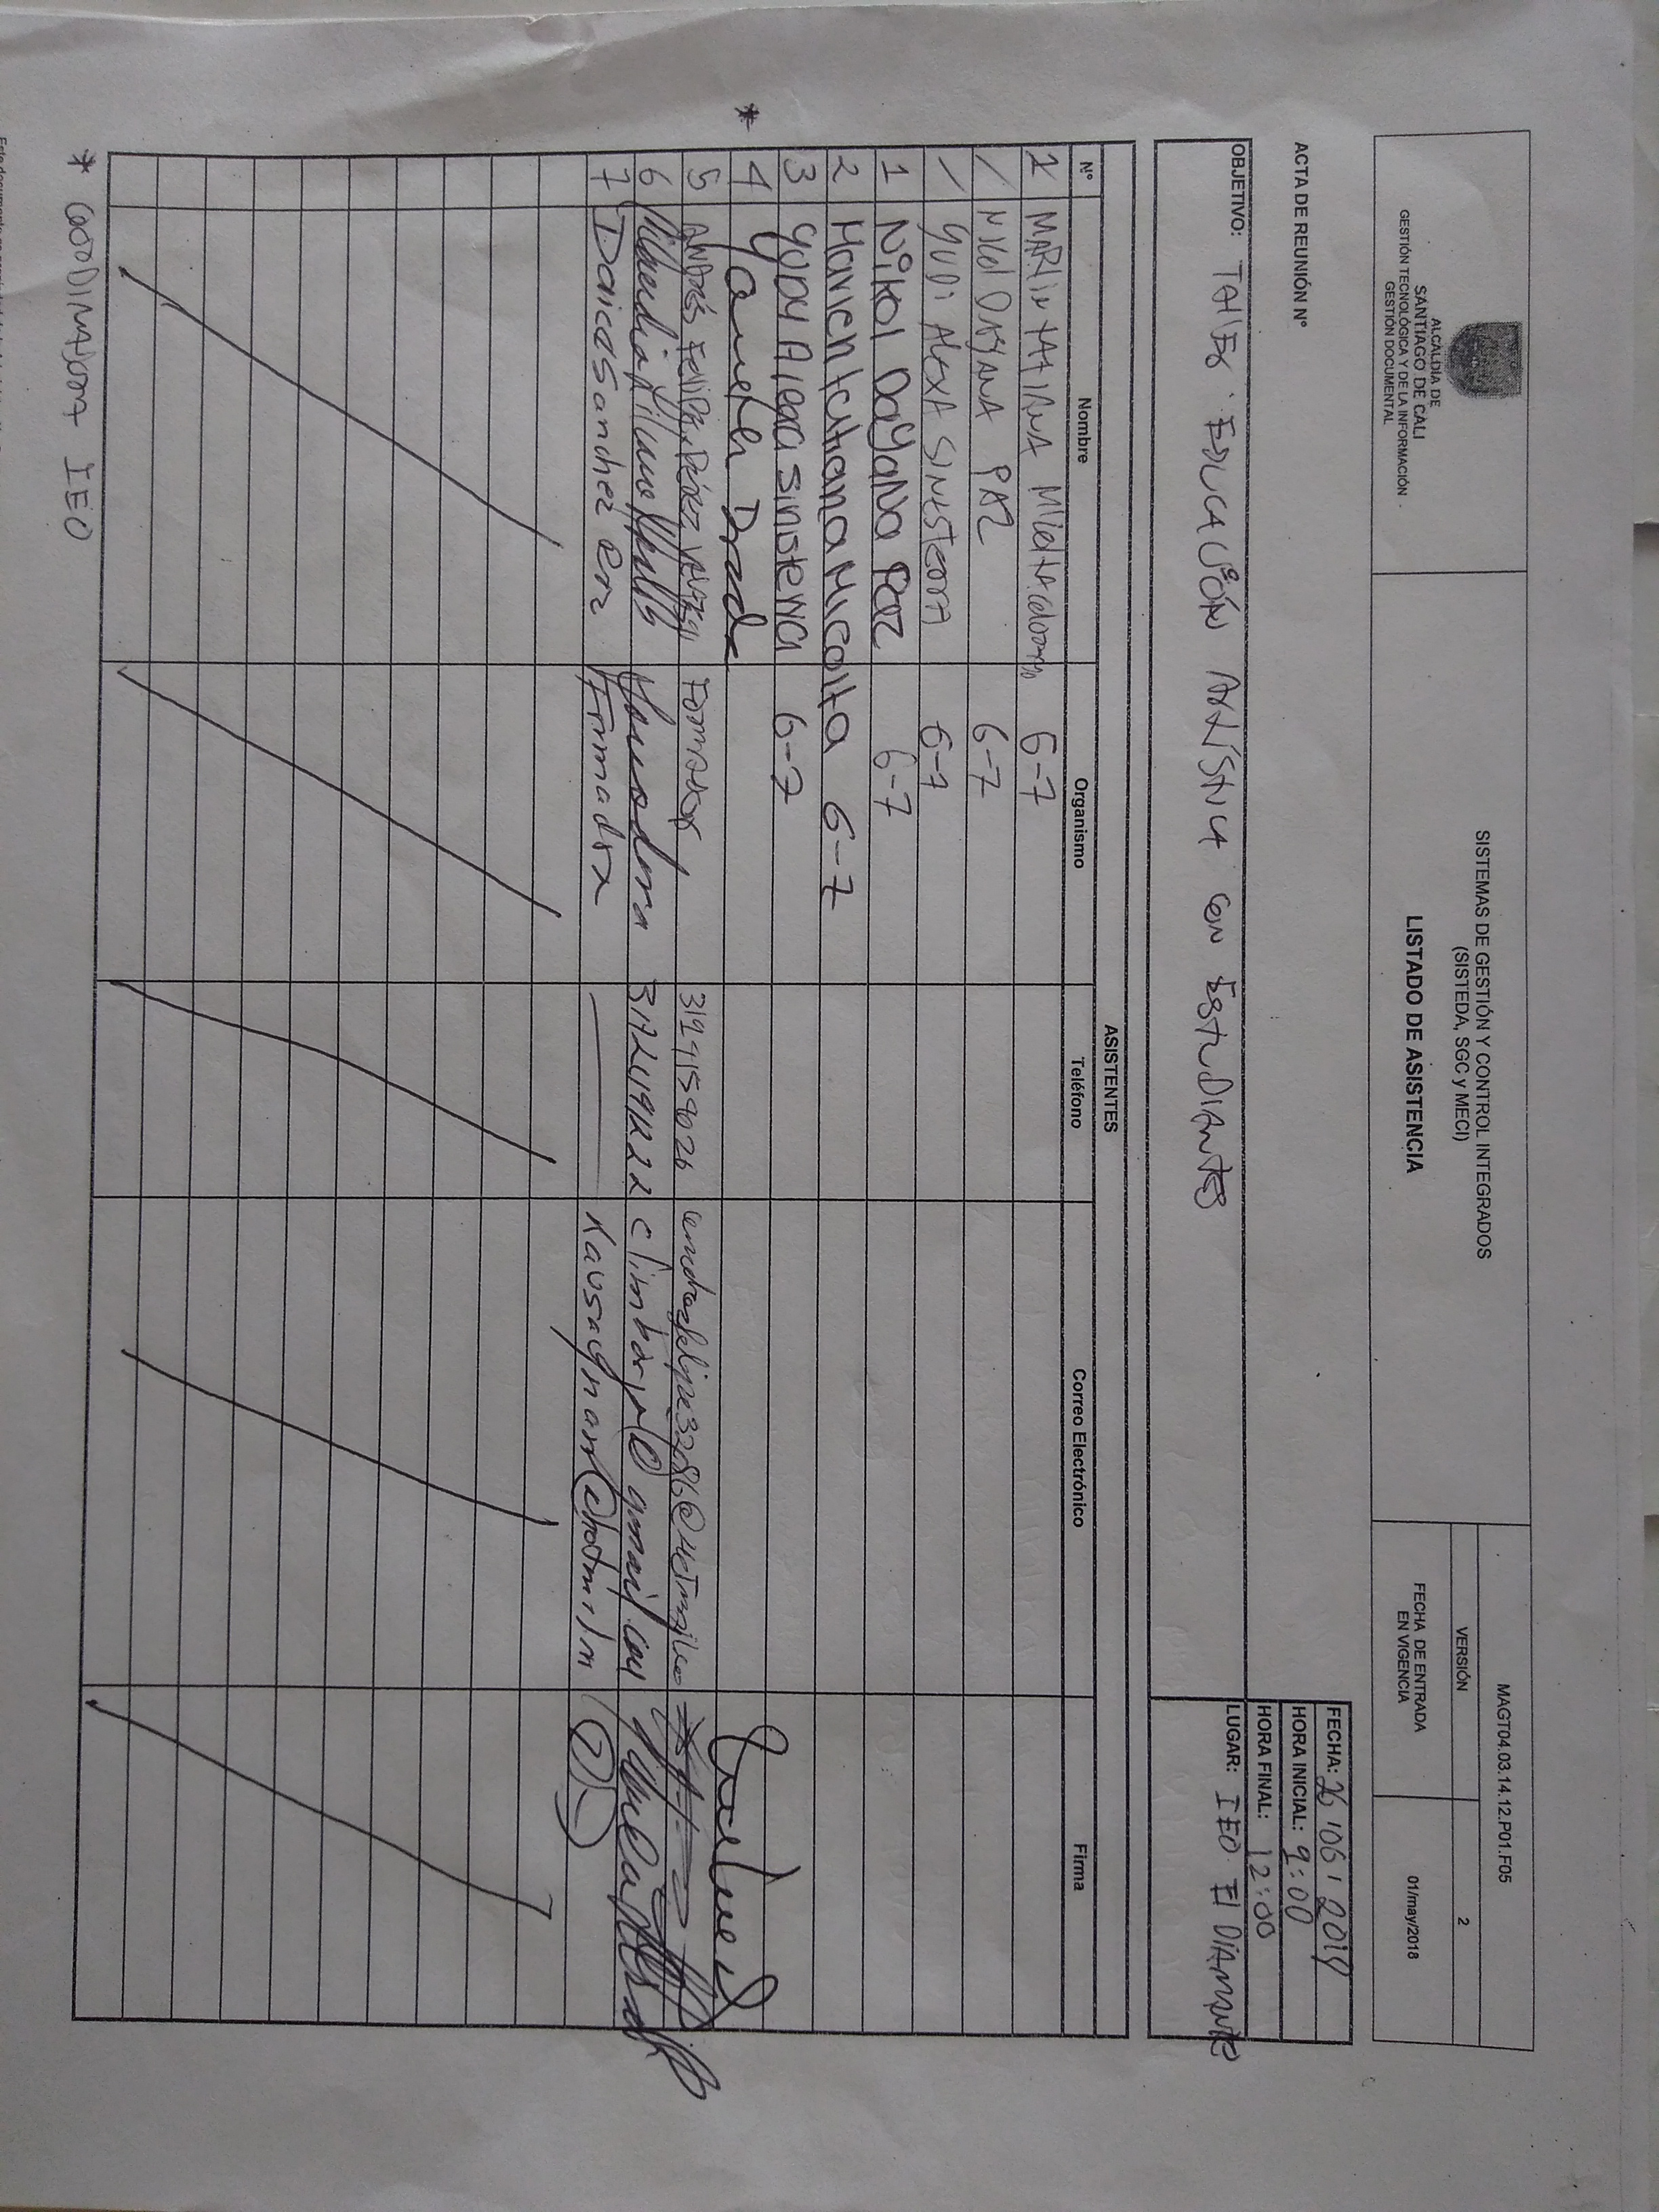 ALCALDÍA DE
SANTIAGO DE CALI
GESTIÓN TECNOLÓGICA Y DE LA INFORMACIÓN
GESTIÓN DOCUMENTAL
SISTEMAS DE GESTIÓN Y CONTROL INTEGRADOS
(SISTEDA, SGC y MECI)
LISTADO DE ASISTENCIA
MAGT04.03.14.12.P01.F05
VERSIÓN 2
FECHA DE ENTRADA
EN VIGENCIA
01/may/2018
ACTA DE REUNIÓN Nº
FECHA: 26 /06/ 2019
HORA INICIAL: 9:00
HORA FINAL: 12:00
OBJETIVO: TALLER EDUCACIÓN ARTÍSTICA CON ESTUDIANTES
LUGAR: IEO El DIAMANTE
ASISTENTES
Nº Nombre Organismo Teléfono Correo Electrónico Firma
1 TATIANA MICOLTA 6-7
NIKOl DAYANA PAZ 6-7
YUDI ALEXA SINESTERRA 6-7
1 NiKOl DaYaNa Paz 6-7
2 Marlen tatiana Micolta 6-7
3 YUDY Alexa sinisterra 6-7
* 4 Yaneth
5 ANDRÉS FELIPE PÉREZ Formador
6 Claudia Liliana @gmail.com
7 Sanchez Formadora
* COORDINADORA IEO